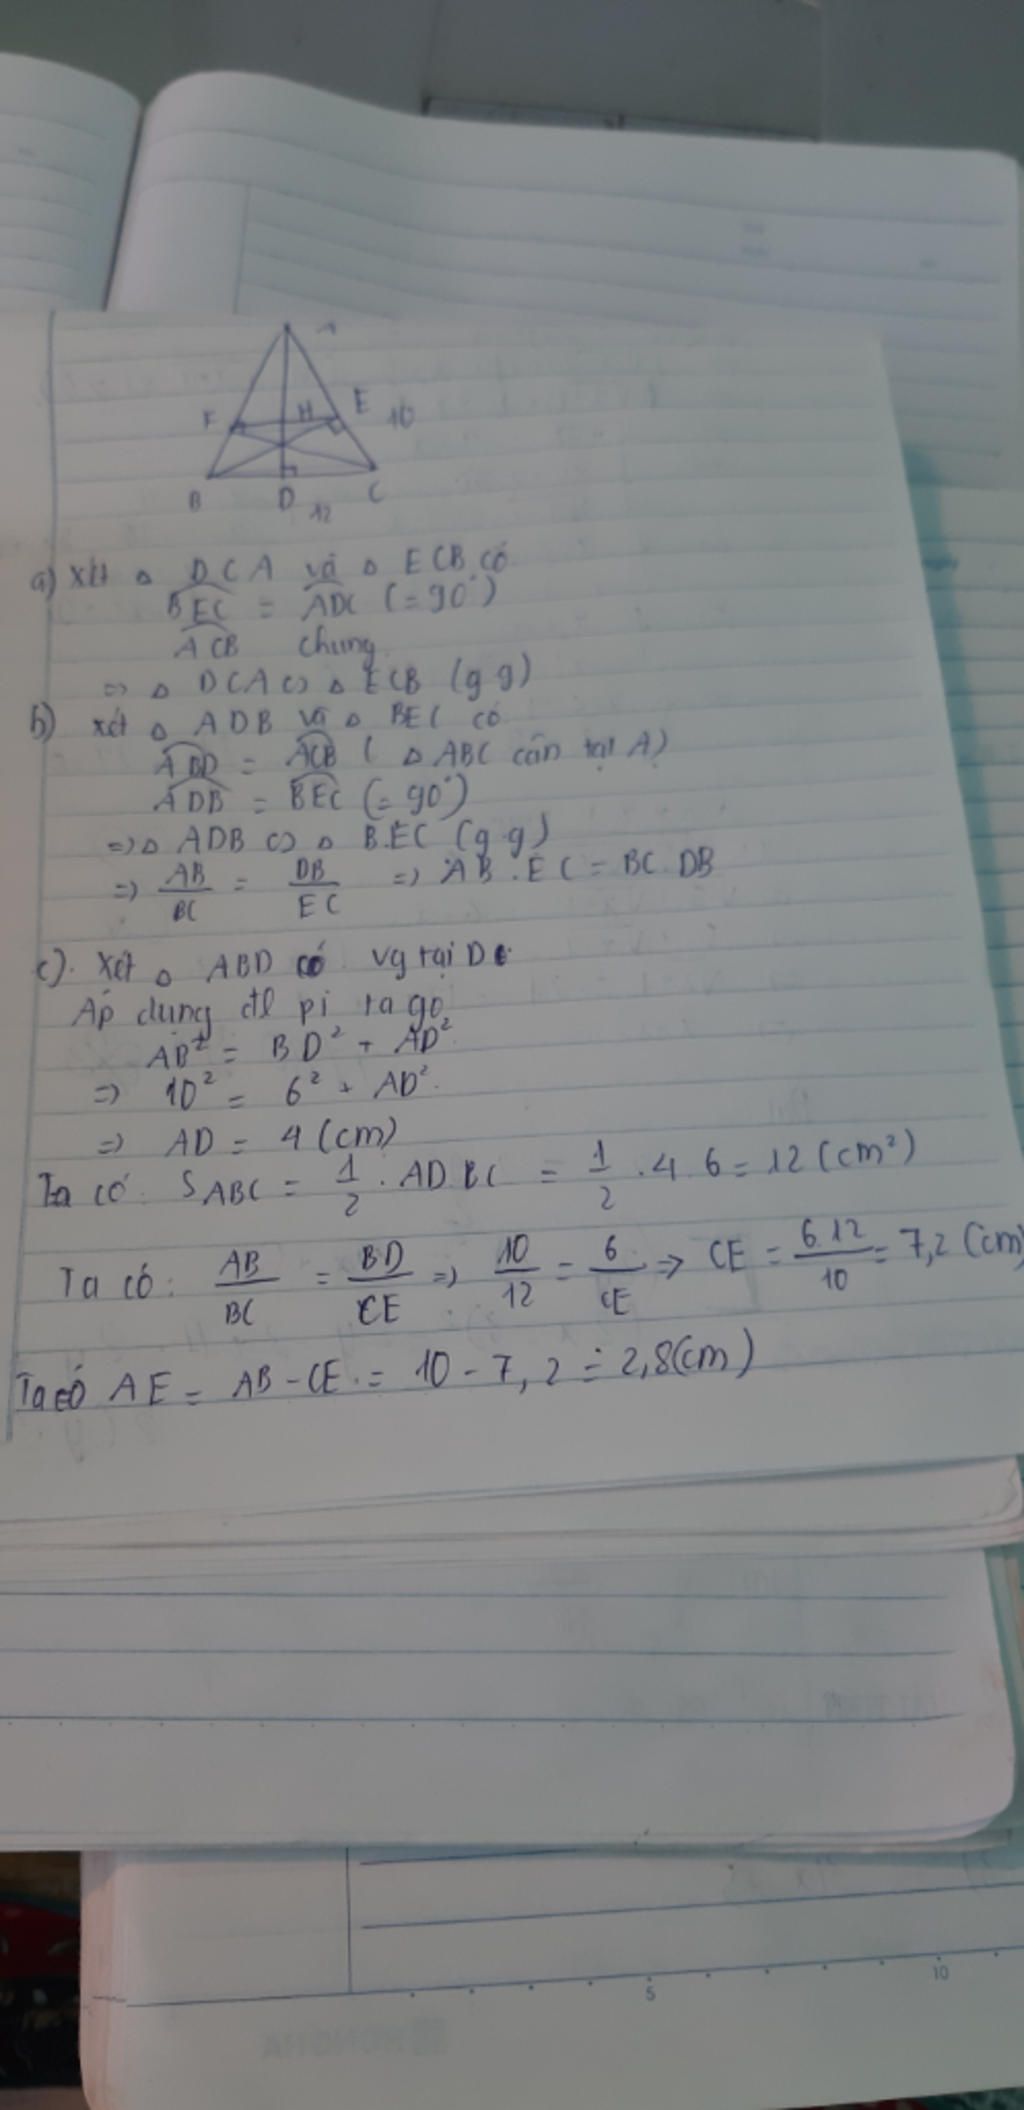 A
F H E 10
B D C
12
a) xét △ DCA và △ ECB có
BEC = ADC (= 90°)
ACB chung
=> △ DCA ∽ △ ECB (g g)
b) xét △ ADB và △ BEC có
ABD = ACB ( △ ABC cân tại A)
ADB = BEC (= 90°)
=> △ ADB ∽ △ BEC (g g)
=> AB/BC = DB/EC => AB . EC = BC . DB
c). Xét △ ABD có vg tại D
Áp dụng đl pi ta go
AB² = BD² + AD²
=> 10² = 6² + AD².
=> AD = 4 (cm)
Ta có: S ABC = 1/2 . AD BC = 1/2 . 4 . 6 = 12 (cm²)
Ta có: AB/BC = BD/CE => 10/12 = 6/CE => CE = 6.12/10 = 7,2 (cm)
Ta có AE = AB - CE = 10 - 7,2 = 2,8(cm)
5 10
HONGHA